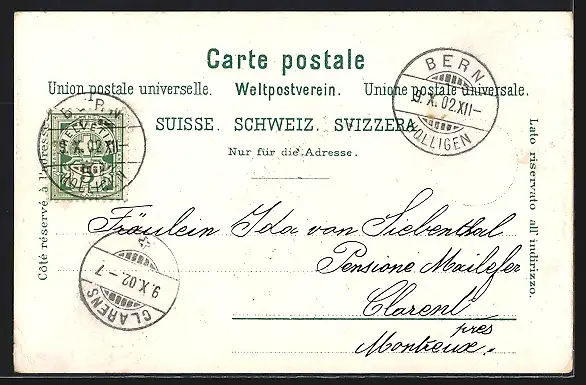 Carte postale
Union postale universelle. Weltpostverein. Unione postale universale.
SUISSE. SCHWEIZ. SVIZZERA.
Nur für die Adresse.
Côté réservé à l'adresse.
Lato riservato all' indirizzo.
BERN
9. X. 02. XII-
HOLLIGEN
BERN
9. X. 02. XII
HOLLIGEN
5
CLARENS
9. X. 02 - 7
Fräulein Ida von Siebenthal
Pensione Mailefer
Clarens
près
Montreux.